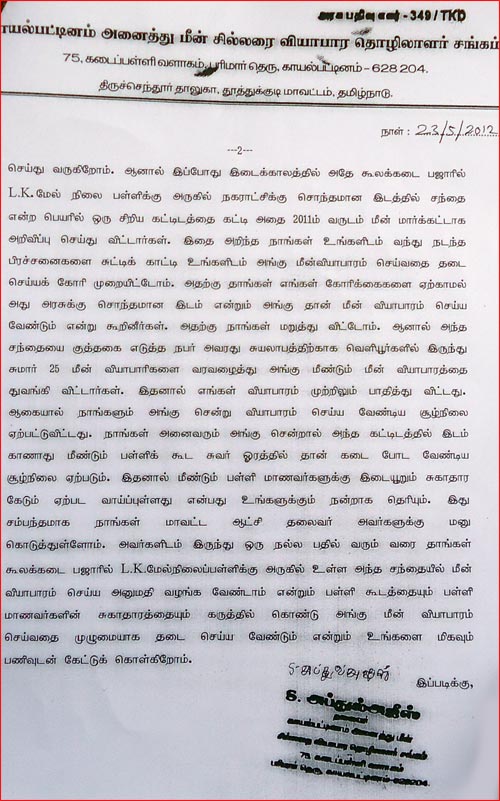 அரசு பதிவு எண் - 349 / TKD
காயல்பட்டினம் அனைத்து மீன் சில்லரை வியாபார தொழிலாளர் சங்கம்
75, கடைப்பள்ளி வளாகம், பரிமார் தெரு, காயல்பட்டினம் - 628 204.
திருச்செந்தூர் தாலுகா, தூத்துக்குடி மாவட்டம், தமிழ்நாடு.
நாள் : 23/5/2012
---2---
செய்து வருகிறோம். ஆனால் இப்போது இடைக்காலத்தில் அதே கூலக்கடை பஜாரில்
L.K.மேல் நிலை பள்ளிக்கு அருகில் நகராட்சிக்கு சொந்தமான இடத்தில் சந்தை
என்ற பெயரில் ஒரு சிறிய கட்டிடத்தை கட்டி அதை 2011ம் வருடம் மீன் மார்க்கட்டாக
அறிவிப்பு செய்து விட்டார்கள். இதை அறிந்த நாங்கள் உங்களிடம் வந்து நடந்த
பிரச்சனைகளை சுட்டிக் காட்டி உங்களிடம் அங்கு மீன்வியாபாரம் செய்வதை தடை
செய்யக் கோரி முறையிட்டோம். அதற்கு தாங்கள் எங்கள் கோரிக்கைகளை ஏற்காமல்
அது அரசுக்கு சொந்தமான இடம் என்றும் அங்கு தான் மீன் வியாபாரம் செய்ய
வேண்டும் என்று கூறினீர்கள். அதற்கு நாங்கள் மறுத்து விட்டோம். ஆனால் அந்த
சந்தையை குத்தகை எடுத்த நபர் அவரது சுயலாபத்திற்காக வெளியூர்களில் இருந்து
சுமார் 25 மீன் வியாபாரிகளை வரவழைத்து அங்கு மீண்டும் மீன் வியாபாரத்தை
துவங்கி விட்டார்கள். இதனால் எங்கள் வியாபாரம் முற்றிலும் பாதித்து விட்டது.
ஆகையால் நாங்களும் அங்கு சென்று வியாபாரம் செய்ய வேண்டிய சூழ்நிலை
ஏற்பட்டுவிட்டது. நாங்கள் அனைவரும் அங்கு சென்றால் அந்த கட்டிடத்தில் இடம்
காணாது மீண்டும் பள்ளிக் கூட சுவர் ஓரத்தில் தான் கடை போட வேண்டிய
சூழ்நிலை ஏற்படும். இதனால் மீண்டும் பள்ளி மாணவர்களுக்கு இடையூறும் சுகாதார
கேடும் ஏற்பட வாய்ப்புள்ளது என்பது உங்களுக்கும் நன்றாக தெரியும். இது
சம்பந்தமாக நாங்கள் மாவட்ட ஆட்சி தலைவர் அவர்களுக்கு மனு
கொடுத்துள்ளோம். அவர்களிடம் இருந்து ஒரு நல்ல பதில் வரும் வரை தாங்கள்
கூலக்கடை பஜாரில் L.K.மேல்நிலைப்பள்ளிக்கு அருகில் உள்ள அந்த சந்தையில் மீன்
வியாபாரம் செய்ய அனுமதி வழங்க வேண்டாம் என்றும் பள்ளி கூடத்தையும் பள்ளி
மாணவர்களின் சுகாதாரத்தையும் கருத்தில் கொண்டு அங்கு மீன் வியாபாரம்
செய்வதை முழுமையாக தடை செய்ய வேண்டும் என்றும் உங்களை மிகவும்
பணிவுடன் கேட்டுக் கொள்கிறோம்.
இப்படிக்கு,
S. அப்துல்அஜீஸ்
தலைவர்
காயல்பட்டினம் அனைத்து மீன்
சில்லரை வியாபார தொழிலாளர் சங்கம்
75, கடைப்பள்ளி வளாகம்
பரிமார் தெரு, காயல்பட்டினம்-628204.